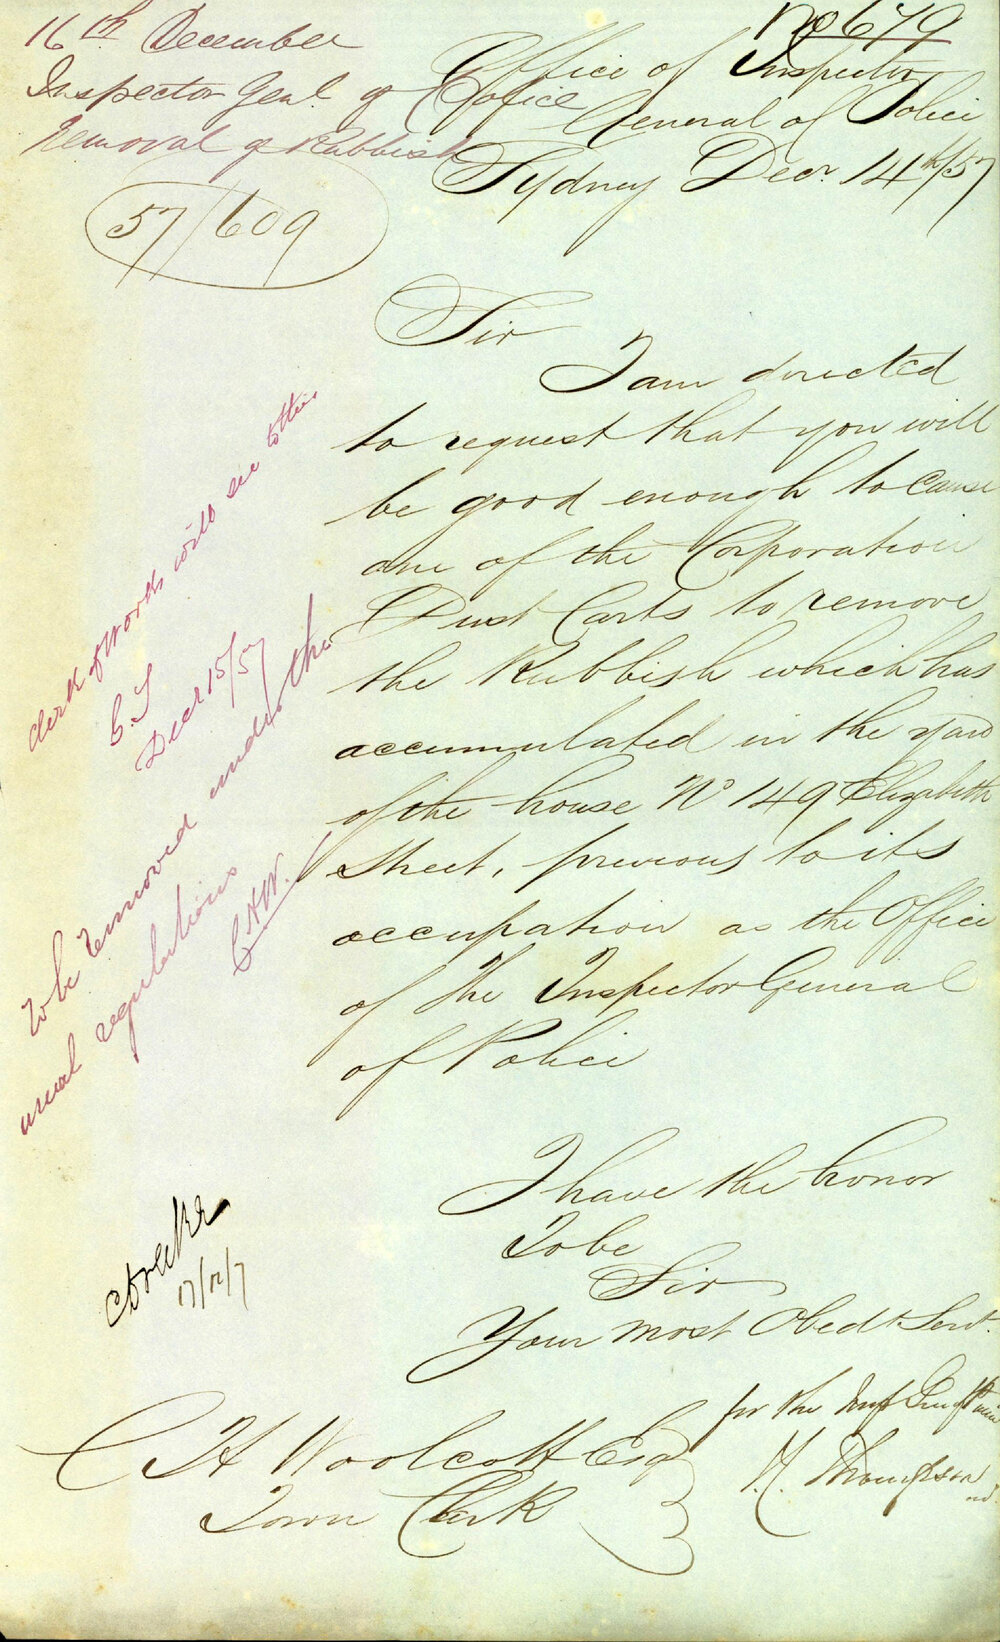 No 679
16th December
Inspector Genl. of Police
Removal of Rubbish
57/609
Office of Inspector
General of Police
Sydney Decr. 14th/57
Sir
I am directed
to request that you will
be good enough to cause
one of the Corporation
Dust Carts to remove
the Rubbish which has
accumulated in the yard
of the house No 149 Elizabeth
Street, previous to its
occupation as the Office
of the Inspector General
of Police
I have the honor
To be
Sir
Your most Obedt Servt.
for the Insp Genl Police
Thompson
C H Woolcott Esq
Town Clerk
Clerk of Works will see to this
Decr 15/57
To be removed under the
usual regulations
C.H.W.
17/12/7